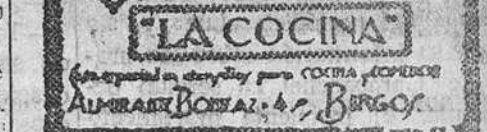 "LA COCINA"
Casa especial en utensilios para COCINA y COMEDOR
ALMIRANTE BONIFAZ, 4 BURGOS